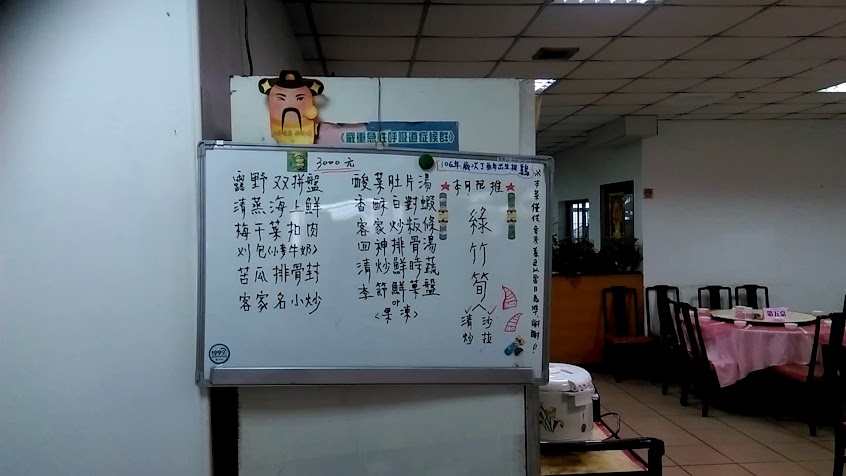 嚴重急性呼吸道症候群
3000元
露野双拼盤
清蒸海上鮮
梅干菜扣肉
刈包(烤牛奶)
苦瓜排骨封
客家名小炒
酸菜肚片湯
香酥白對蝦
客家炒粄條
四神排骨湯
清炒鮮時蔬
季節鮮菓盤
or
<果凍>
106年歲次丁酉年出生雞
本月促推
綠竹筍
清炒
沙拉
1999
第五桌